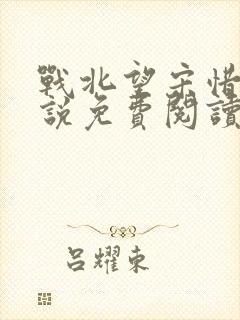 戰北望宋惜
說免費閱讀
呂耀東